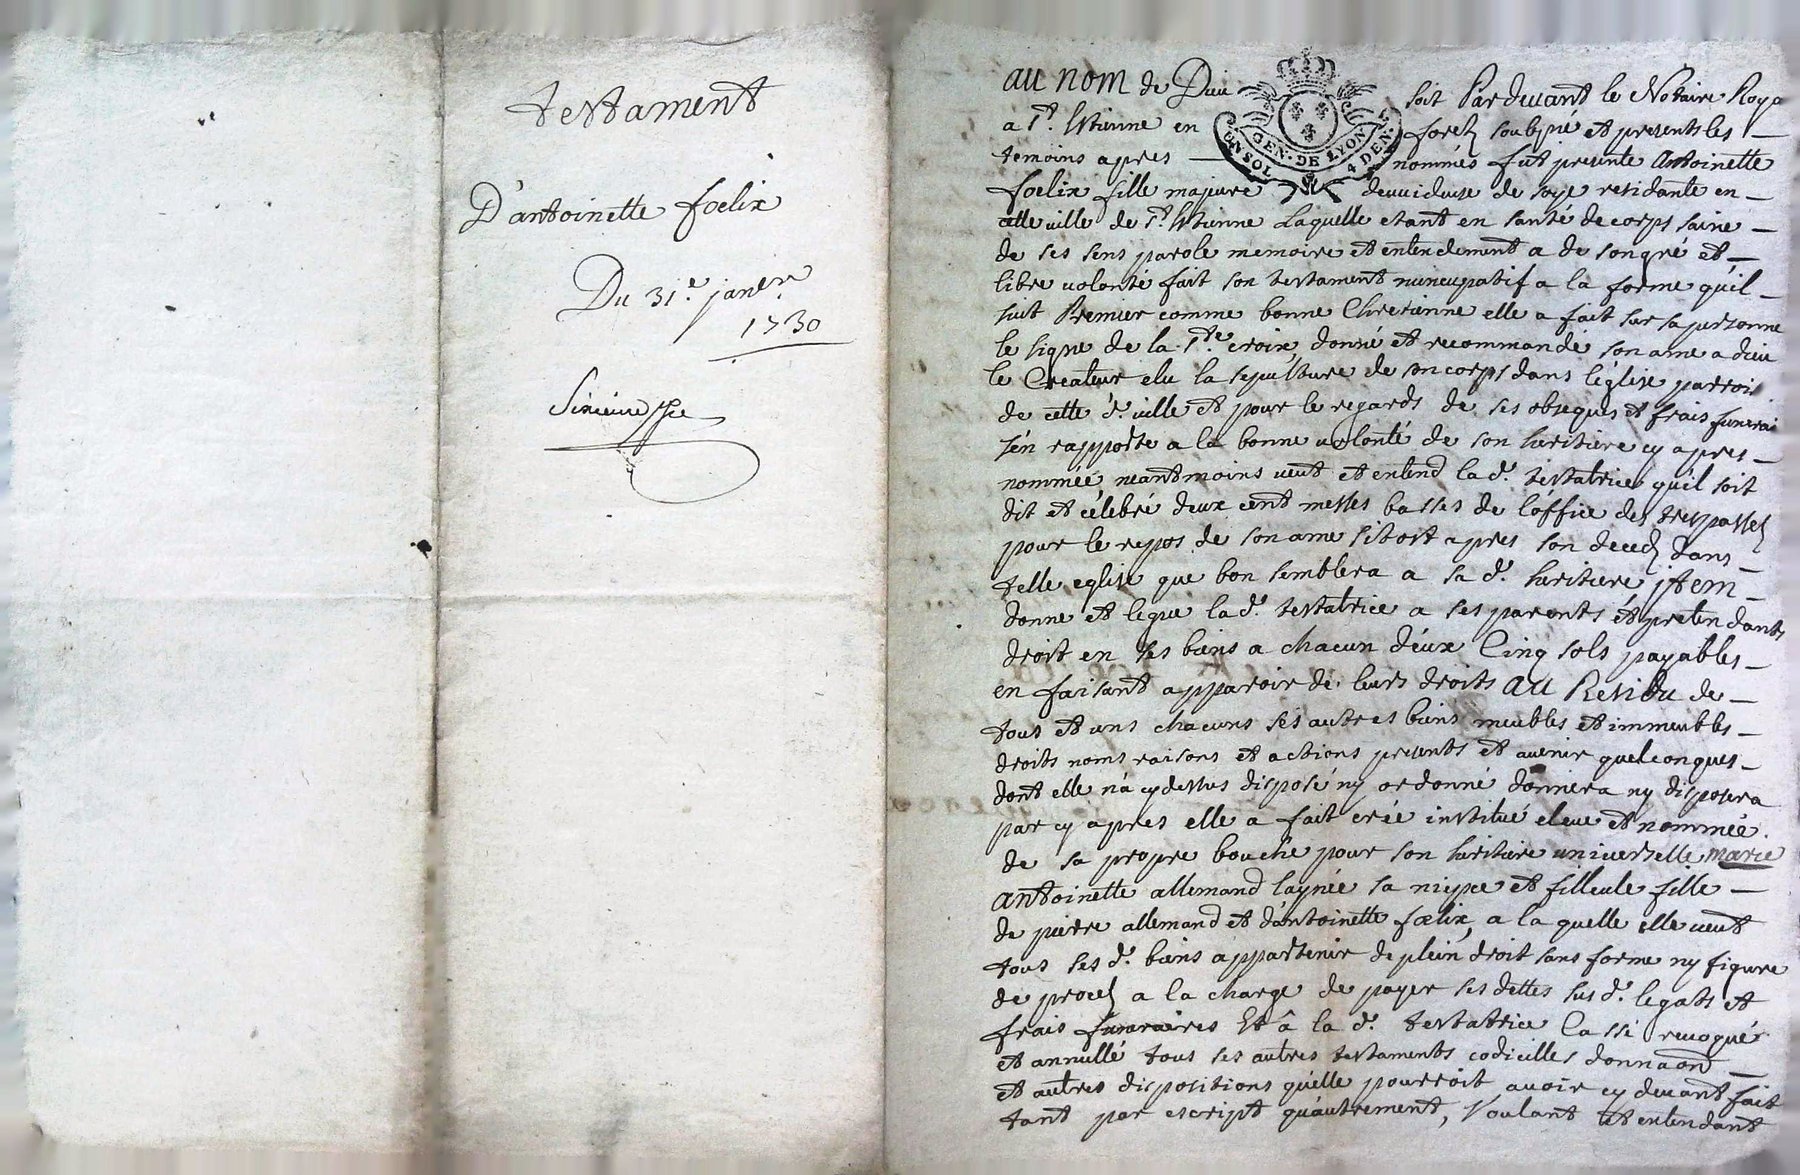 testament
D'antoinette foelix
Du 31.e janvr
1730
au nom de Dieu soit Pardevant le Notaire Roya
a St. Etienne en forest soubsné et presents les
temoins apres nommés fut presente Antoinette
foelix fille majure devuideuse de soye residante en
cette ville de St. Etienne Laquelle etant en santé de corps saine
de ses sens parole memoire et entendement a de son gré et
libre volonté fait son testament nuncupatif a la forme qu'il
suit Premier comme bonne Chretienne elle a fait sur sa personne
le signe de la Ste croix, donné et recommandé son ame a dieu
le Createur elu la sepulture de son corps dans l'église parrois
de cette d. ville et pour le regards de ses obseques et frais funerai
s'en rapporte a la bonne volonté de son heritiere cy apres
nommée neantmoins veut et entend la d. testatrice qu'il soit
dit et célebré deux cent messes basses de l'office des trespassés
pour le repos de son ame sitost apres son deces dans
telle eglise que bon semblera a sa d. heritiere item
donne et legue la d. testatrice a ses parents et pretendants
droit en ses biens a chacun d'eux Cinq sols payables
en faisant apparoir de leurs droits au Residu de
tous et uns chacuns ses autres biens meubles et immeubles
droits noms raisons et actions presents et avenir quelconques
dont elle n'a cy dessus disposé ny ordonné donnera ny disposera
par cy apres elle a fait créé institué eleue et nommée
de sa propre bouche pour son heritiere universelle marie
antoinette allemand laynée sa niepce et filleule fille
de pierre allemand et d'antoinette foelix, a la quelle elle veut
tous ses d. biens appartenir de plein droit sans forme ny figure
de proces a la charge de payer ses dettes sus d. legats et
frais funeraires Et a la d. testatrice Cassé revoqué
et annullé tous ses autres testaments codicilles donnaon
et autres dispositions qu'elle pourroit avoir cy devant fait
tant par escript qu'autrement, Voulant et entendant
GEN. DE LYON
EN SOL 4 DEN.